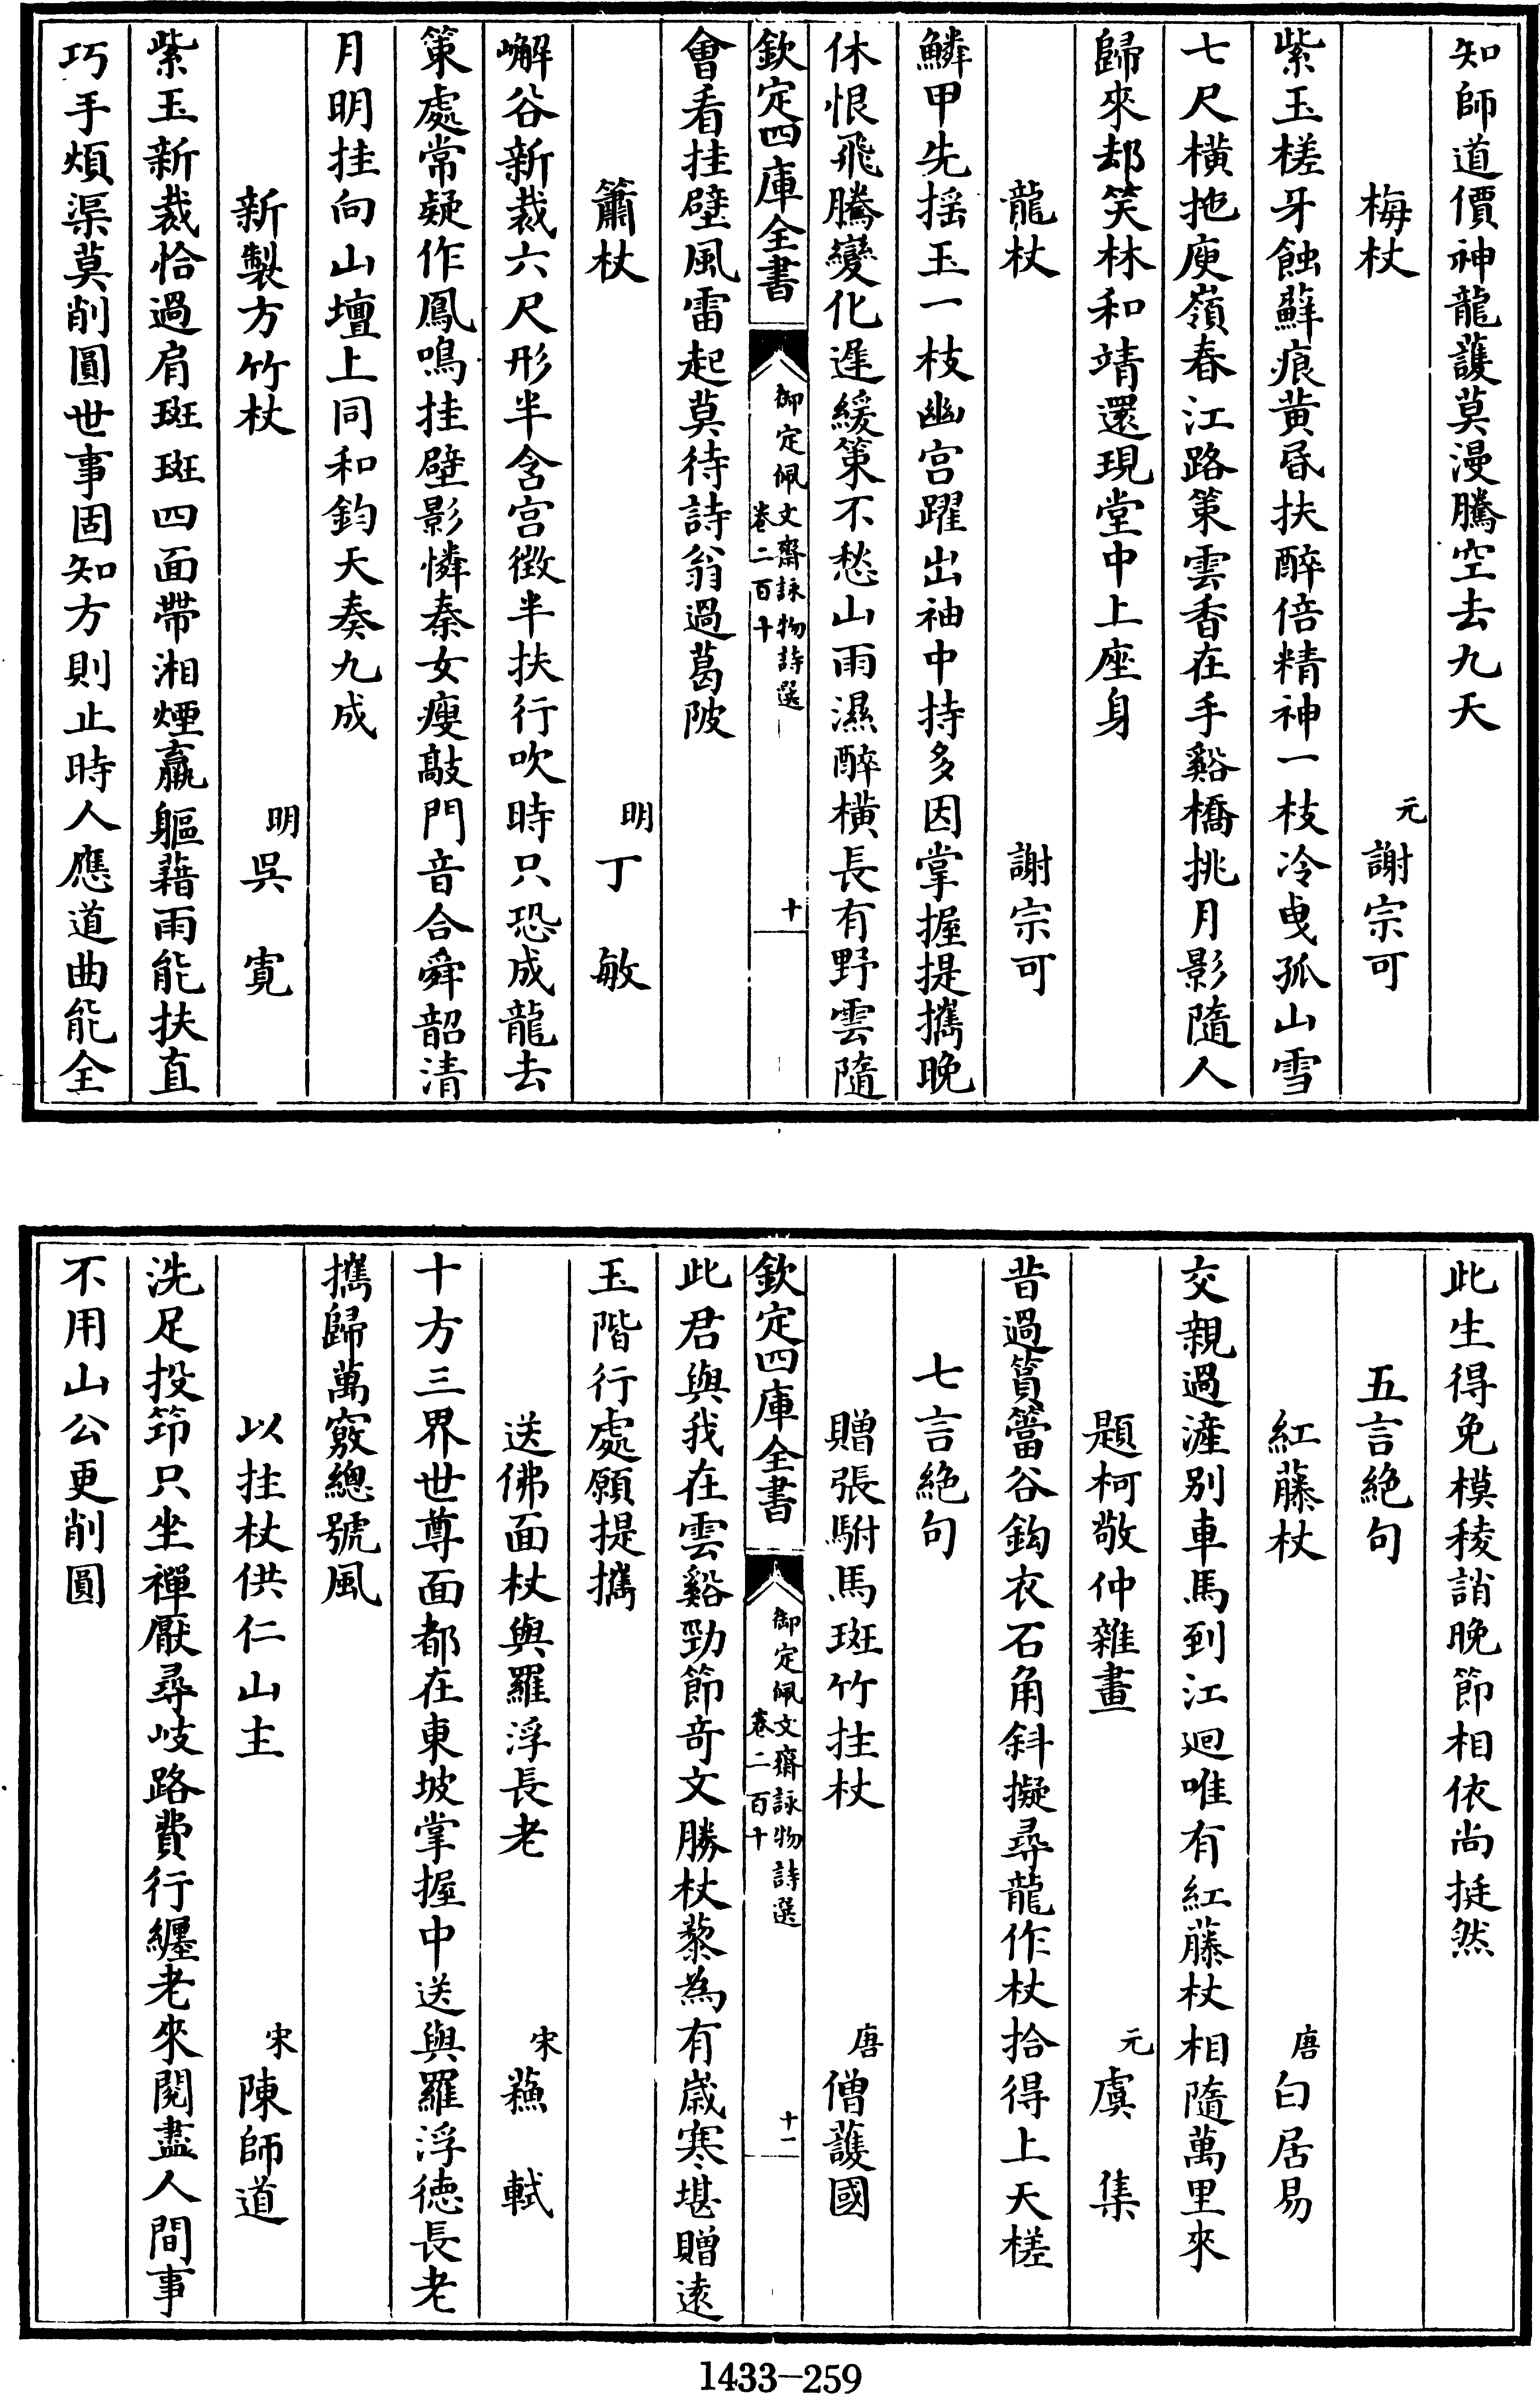 知師道價神龍䕶莫漫騰空去九天
梅杖　元　謝宗可
紫玉槎牙蝕蘚痕黄昏扶醉倍精神一枝冷曳孤山雪
七尺横拖庾嶺春江路策雲香在手谿橋挑月影隨人
歸來却笑林和靖還現堂中上座身
龍杖　謝宗可
鱗甲先揺玉一枝幽宫躍出袖中持多因掌握提攜晚
休恨飛騰變化遲緩策不愁山雨濕醉横長有野雲隨
欽定四庫全書　御定佩文齋詠物詩選　卷二百十　十
會看挂壁風雷起莫待詩翁過葛陂
簫杖　明　丁敏
嶰谷新裁六尺形半含宫徴半扶行吹時只恐成龍去
策處常疑作鳳鳴挂壁影憐秦女瘦敲門音合舜韶清
月明挂向山壇上同和鈞天奏九成
新製方竹杖　明　吳寛
紫玉新裁恰過肩斑斑四面帶湘煙羸軀藉雨能扶直
巧手煩渠莫削圓世事固知方則止時人應道曲能全
此生得免模稜誚晚節相依尚挺然
五言絶句
紅藤杖　唐　白居易
交親過滻别車馬到江迴唯有紅藤杖相隨萬里來
題柯敬仲雜畫　元　虞集
昔過篔簹谷鈎衣石角斜擬尋龍作杖拾得上天槎
七言絶句
贈張駙馬斑竹拄杖　唐　僧䕶國
欽定四庫全書　御定佩文齋詠物詩選　卷二百十　十一
此君與我在雲谿勁節竒文勝杖藜為有嵗寒堪贈逺
玉階行處願提攜
送佛面杖與羅浮長老　宋　蘓軾
十方三界世尊面都在東坡掌握中送與羅浮徳長老
攜歸萬竅總號風
以拄杖供仁山主　宋　陳師道
洗足投筇只坐禪厭尋岐路費行纏老來閱盡人間事
不用山公更削圓
1433-259